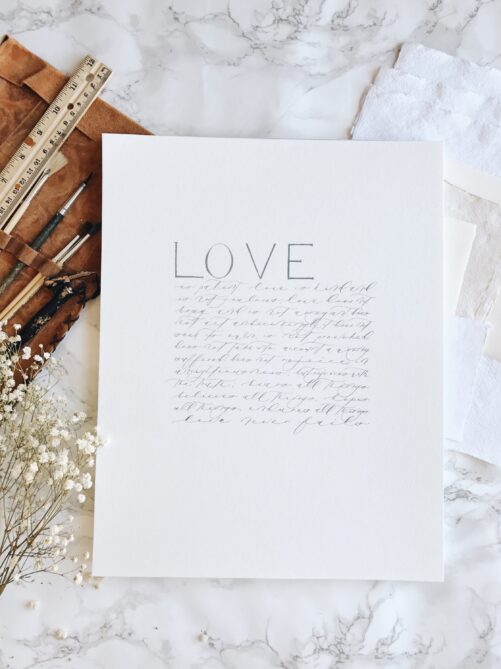 LOVE
is patient love is kind and
is not jealous; love does not
brag and is not arrogant does
not act unbecomingly it does not
seek its own is not provoked
does not take into account a wrong
suffered does not rejoice in
unrighteousness, but rejoices with
the truth; bears all things
believes all things, hopes
all things, endures all things
love never fails